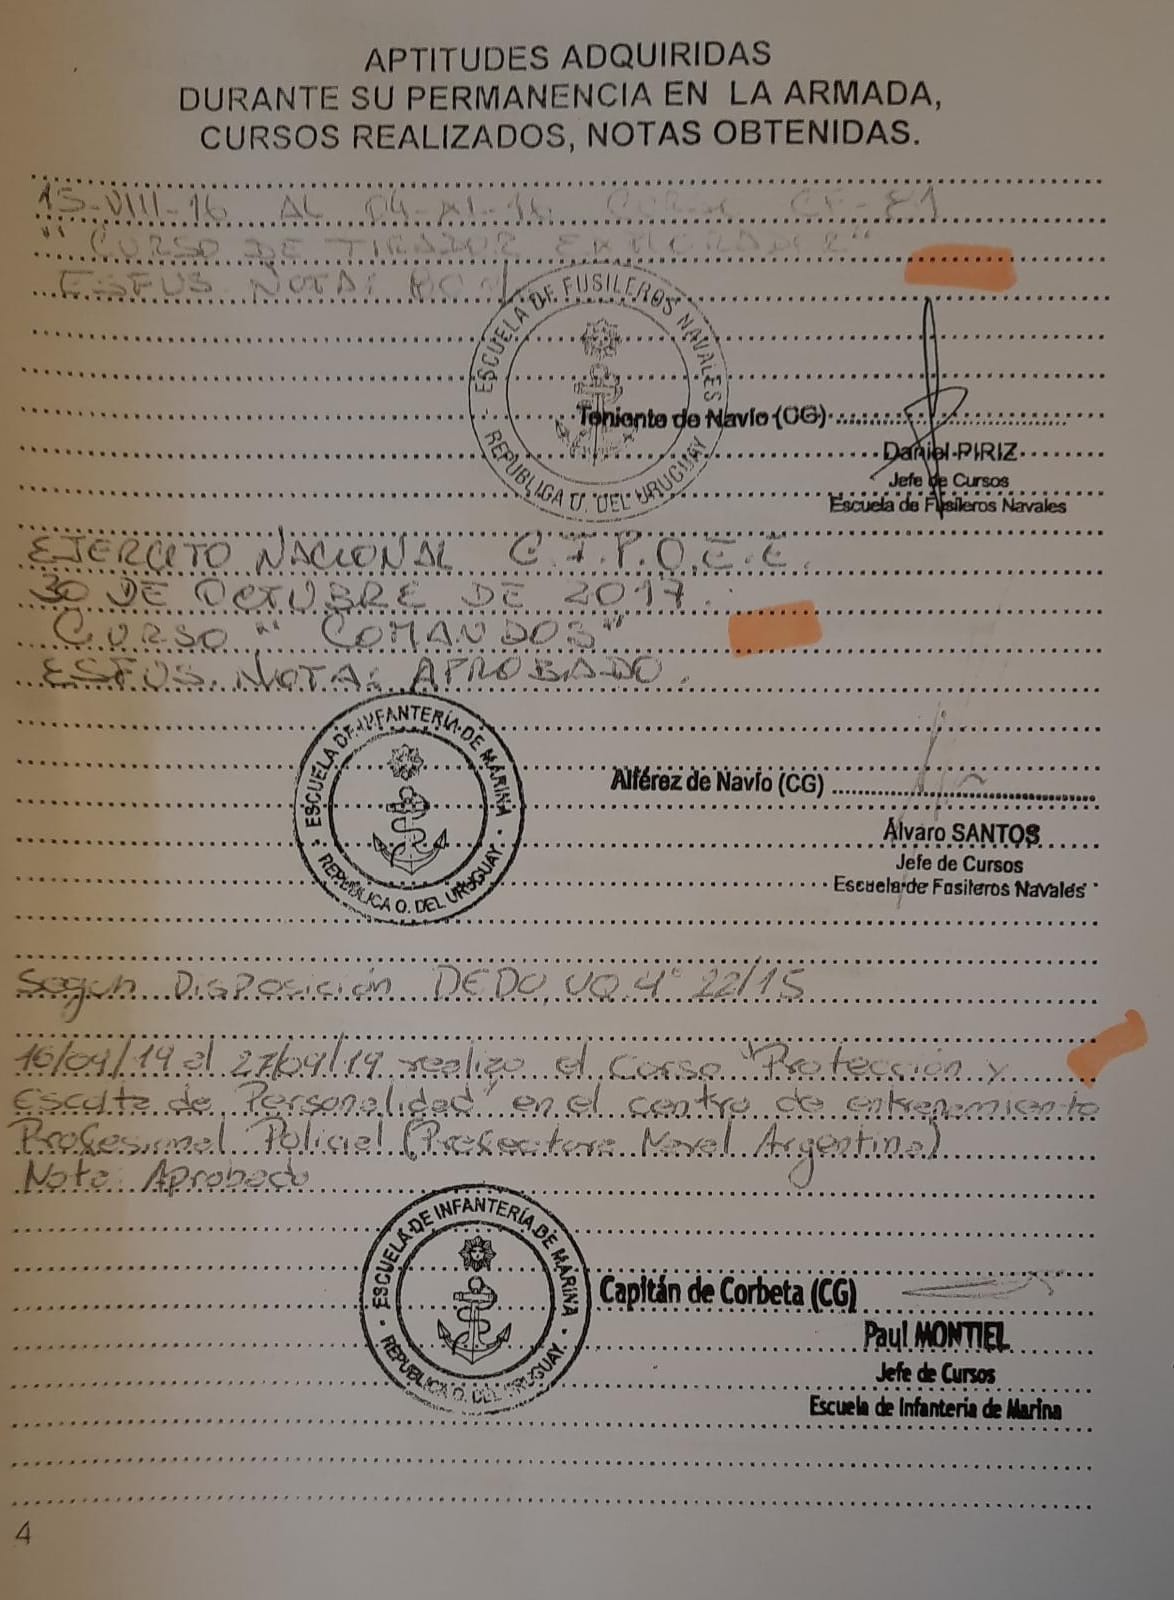 APTITUDES ADQUIRIDAS
DURANTE SU PERMANENCIA EN LA ARMADA,
CURSOS REALIZADOS, NOTAS OBTENIDAS.
15-VIII-16 AL 04-XI-16 CF-81
"CURSO DE TIRADOR EXPLORADOR"
ESFUS NOTA:
ESCUELA DE FUSILEROS NAVALES
REPUBLICA O. DEL URUGUAY
Teniente de Navío (CG)
Daniel PIRIZ
Jefe de Cursos
Escuela de Fusileros Navales
EJERCITO NACIONAL
30 DE OCTUBRE DE 2017.
CURSO "COMANDOS"
ESFUS. NOTA: APROBADO.
ESCUELA DE INFANTERÍA DE MARINA
REPÚBLICA O. DEL URUGUAY
Alférez de Navío (CG)
Álvaro SANTOS
Jefe de Cursos
Escuela de Fusileros Navales
Segun Disposición 22/15
16/09/19 al 27/09/19 realizo el Curso "Protección y
Escolta de Personalidad" en el centro de entrenamiento
Profesional Policial (Prefectura Naval Argentina)
Nota: Aprobado
ESCUELA DE INFANTERÍA DE MARINA
REPÚBLICA O. DEL URUGUAY
Capitán de Corbeta (CG)
Paul MONTIEL
Jefe de Cursos
Escuela de Infantería de Marina
4